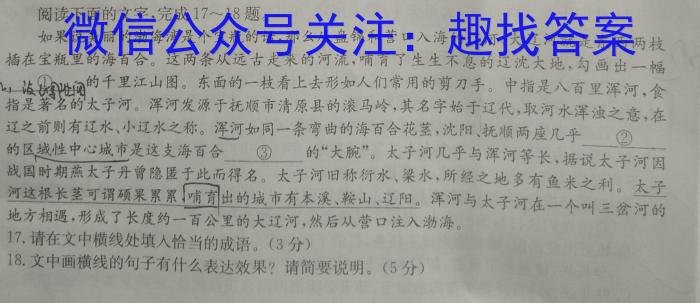 阅读下面的文字,完成17～18题。
微信公众号关注：趣找答案
如果
插在宝瓶里的海百合。这两条从远古走来的河流,哺育了生生不息的辽沈大地,勾画出一幅
①的千里江山图。东面的一枝看上去形如人们常用的剪刀手。中指是八百里浑河,食
指是著名的太子河。浑河发源于抚顺市清原县的滚马岭,其名字始于辽代,取河水浑浊之意,在
辽之前则有辽水、小辽水之称。浑河如同一条弯曲的海百合花茎,沈阳、抚顺两座几乎②
的区域性中心城市是这支海百合③的“大腕”。太子河几乎与浑河等长,据说太子河因
战国时期燕太子丹曾隐匿于此而得名。太子河旧称衍水、梁水,所经之地多有鱼米之利。太子
河这根长茎可谓硕果累累,哺育出的城市有本溪、鞍山、辽阳。浑河与太子河在一个叫三岔河的
地方相遇,形成了长度约一百公里的大辽河,然后从营口注入渤海。
17.请在文中横线处填入恰当的成语。(3分)
18.文中画横线的句子有什么表达效果？请简要说明。(5分)